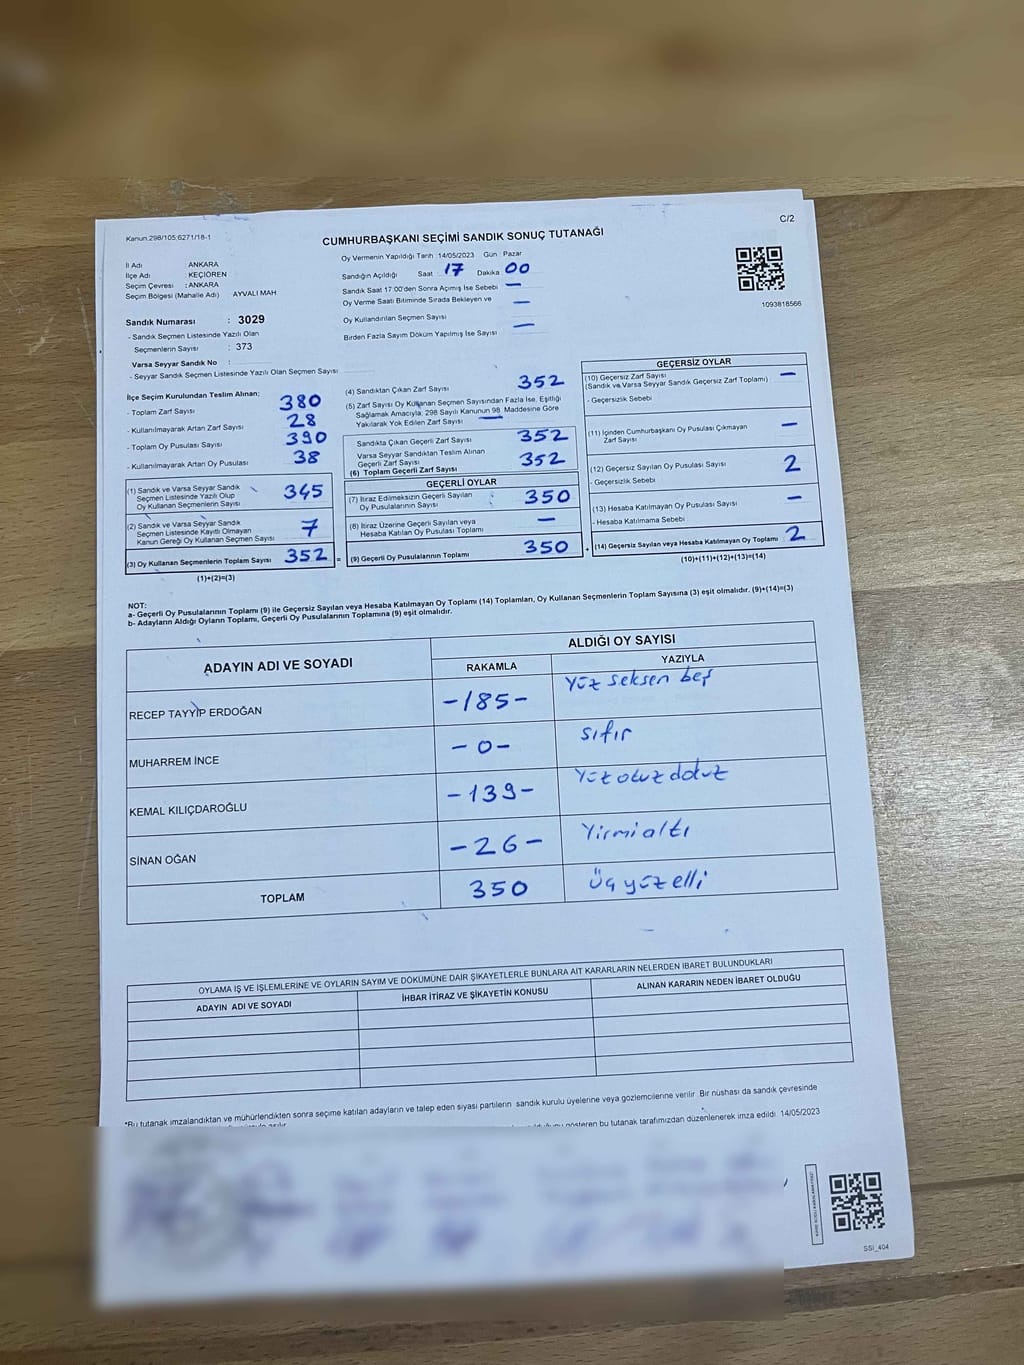 Kanun:298/105;6271/18-1
C/2
CUMHURBAŞKANI SEÇİMİ SANDIK SONUÇ TUTANAĞI
İl Adı : ANKARA
İlçe Adı : KEÇİÖREN
Seçim Çevresi : ANKARA
Seçim Bölgesi (Mahalle Adı) AYVALI MAH
Sandık Numarası : 3029
- Sandık Seçmen Listesinde Yazılı Olan
Seçmenlerin Sayısı : 373
Varsa Seyyar Sandık No :
- Seyyar Sandık Seçmen Listesinde Yazılı Olan Seçmen Sayısı
Oy Vermenin Yapıldığı Tarih 14/05/2023 Gün : Pazar
Sandığın Açıldığı Saat 17 Dakika 00
Sandık Saat 17:00'den Sonra Açımış İse Sebebi —
Oy Verme Saati Bitiminde Sırada Bekleyen ve —
Oy Kullandırılan Seçmen Sayısı
Birden Fazla Sayım Döküm Yapılmış İse Sayısı —
1093818566
İlçe Seçim Kurulundan Teslim Alınan;
- Toplam Zarf Sayısı 380
- Kullanılmayarak Artan Zarf Sayısı 28
- Toplam Oy Pusulası Sayısı 390
- Kullanılmayarak Artan Oy Pusulası 38
(1) Sandık ve Varsa Seyyar Sandık
Seçmen Listesinde Yazılı Olup
Oy Kullanan Seçmenlerin Sayısı 345
(2) Sandık ve Varsa Seyyar Sandık
Seçmen Listesinde Kayıtlı Olmayan
Kanun Gereği Oy Kullanan Seçmen Sayısı 7
(3) Oy Kullanan Seçmenlerin Toplam Sayısı 352 =
(1)+(2)=(3)
(4) Sandıktan Çıkan Zarf Sayısı 352
(5) Zarf Sayısı Oy Kullanan Seçmen Sayısından Fazla İse, Eşitliği
Sağlamak Amacıyla; 298 Sayılı Kanunun 98. Maddesine Göre
Yakılarak Yok Edilen Zarf Sayısı —
Sandıkta Çıkan Geçerli Zarf Sayısı 352
Varsa Seyyar Sandıktan Teslim Alınan
Geçerli Zarf Sayısı
(6) Toplam Geçerli Zarf Sayısı 352
GEÇERLİ OYLAR
(7) İtiraz Edimeksizin Geçerli Sayılan
Oy Pusulalarının Sayısı 350
(8) İtiraz Üzerine Geçerli Sayılan veya
Hesaba Katılan Oy Pusulası Toplamı —
(9) Geçerli Oy Pusulalarının Toplamı 350 +
GEÇERSİZ OYLAR
(10) Geçersiz Zarf Sayısı
(Sandık ve Varsa Seyyar Sandık Geçersiz Zarf Toplamı) —
- Geçersizlik Sebebi
(11) İçinden Cumhurbaşkanı Oy Pusulası Çıkmayan
Zarf Sayısı —
(12) Geçersiz Sayılan Oy Pusulası Sayısı 2
- Geçersizlik Sebebi
(13) Hesaba Katılmayan Oy Pusulası Sayısı —
- Hesaba Katılmama Sebebi
(14) Geçersiz Sayılan veya Hesaba Katılmayan Oy Toplamı 2
(10)+(11)+(12)+(13)=(14)
NOT:
a- Geçerli Oy Pusulalarının Toplamı (9) ile Geçersiz Sayılan veya Hesaba Katılmayan Oy Toplamı (14) Toplamları, Oy Kullanan Seçmenlerin Toplam Sayısına (3) eşit olmalıdır. (9)+(14)=(3)
b- Adayların Aldığı Oyların Toplamı, Geçerli Oy Pusulalarının Toplamına (9) eşit olmalıdır.
ADAYIN ADI VE SOYADI
ALDIĞI OY SAYISI
RAKAMLA YAZIYLA
RECEP TAYYİP ERDOĞAN -185- Yüz seksen beş
MUHARREM İNCE -0- sıfır
KEMAL KILIÇDAROĞLU -139- Yüz otuz dokuz
SİNAN OĞAN -26- Yirmi altı
TOPLAM 350 Üç yüz elli
OYLAMA İŞ VE İŞLEMLERİNE VE OYLARIN SAYIM VE DÖKÜMÜNE DAİR ŞİKAYETLERLE BUNLARA AİT KARARLARIN NELERDEN İBARET BULUNDUKLARI
ADAYIN ADI VE SOYADI İHBAR İTİRAZ VE ŞİKAYETİN KONUSU ALINAN KARARIN NEDEN İBARET OLDUĞU
*Bu tutanak imzalandıktan ve mühürlendikten sonra seçime katılan adayların ve talep eden siyasi partilerin sandık kurulu üyelerine veya gözlemcilerine verilir. Bir nüshası da sandık çevresinde
gösteren bu tutanak tarafımızdan düzenlenerek imza edildi. 14/05/2023
SSI_404